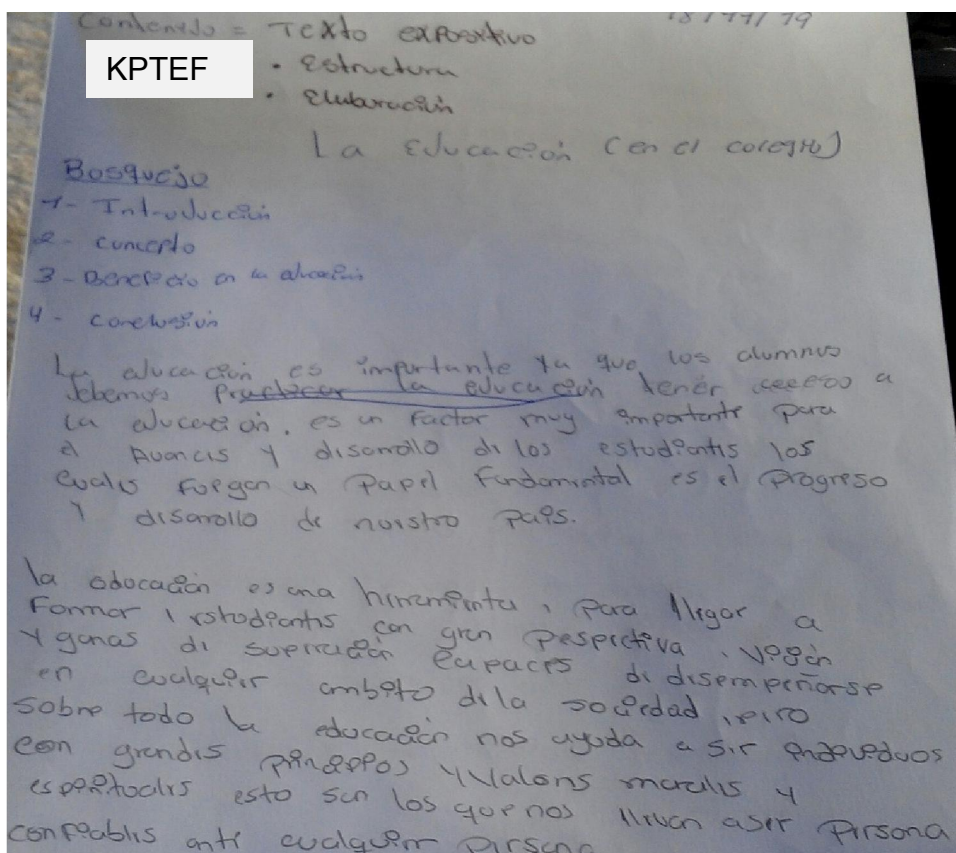 Contenido = Texto expositivo
18/11/19
KPTEF
• Estructura
• Elaboración
La Educación (en el colegio)
Bosquejo
1- Introducción
2- concepto
3- Beneficio en la educación
4- conclusión
La educación es importante ya que los alumnos
debemos practicar la educación tener acceso a
la educación, es un factor muy importante para
el avances y disarrollo di los estudiantis los
cualis fuegan un Papel fundamental es el Progreso
y disarrollo de nuistro país.
la educación es una hiramienta, para llegar a
Formar estudiantis con gran Pespectiva, visión
y ganas di superación capaces di disempeñarse
en cualquier ambito di la sociedad, piro
sobre todo la educación nos ayuda a sir individuos
con grandis principios y valons moralis y
espiritualis esto son los que nos llevan a ser Pirsona
confiablis anti cualquier Pirsona